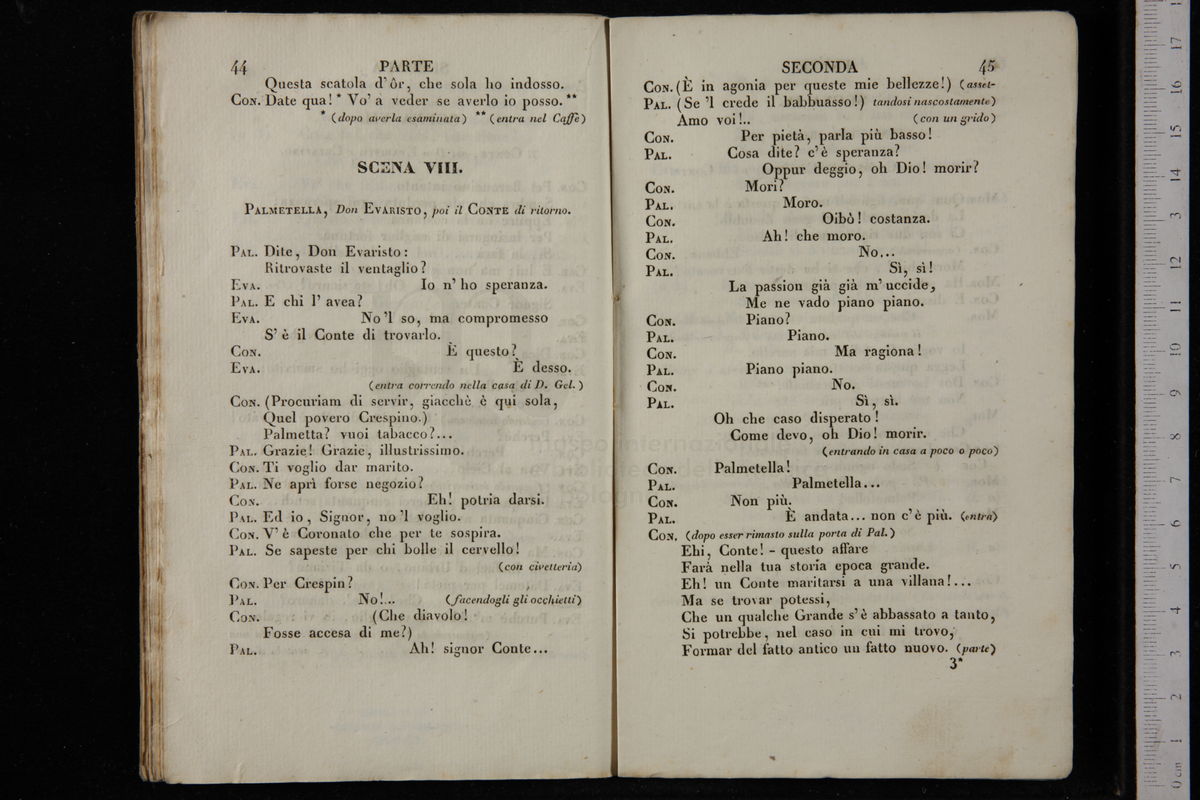 44 PARTE
Questa scatola d'ôr, che sola ho indosso.
Con. Date qua! * Vo' a veder se averlo io posso. **
* (dopo averla esaminata) ** (entra nel Caffè)
SCENA VIII.
Palmetella, Don Evaristo, poi il Conte di ritorno.
Pal. Dite, Don Evaristo:
Ritrovaste il ventaglio?
Eva. Io n'ho speranza.
Pal. E chi l'avea?
Eva. No'l so, ma compromesso
S'è il Conte di trovarlo.
Con. È questo?
Eva. È desso.
(entra correndo nella casa di D. Gel.)
Con. (Procuriam di servir, giacchè è qui sola,
Quel povero Crespino.)
Palmetta? vuoi tabacco?...
Pal. Grazie! Grazie, illustrissimo.
Con. Ti voglio dar marito.
Pal. Ne aprì forse negozio?
Con. Eh! potria darsi.
Pal. Ed io, Signor, no'l voglio.
Con. V'è Coronato che per te sospira.
Pal. Se sapeste per chi bolle il cervello!
(con civetteria)
Con. Per Crespin?
Pal. No!... (facendogli gli occhietti)
Con. (Che diavolo!
Fosse accesa di me?)
Pal. Ah! signor Conte...
SECONDA 45
Con. (È in agonia per queste mie bellezze!) (asset-
Pal. (Se 'l crede il babbuasso!) tandosi nascostamente)
Amo voi!.. (con un grido)
Con. Per pietà, parla più basso!
Pal. Cosa dite? c'è speranza?
Oppur deggio, oh Dio! morir?
Con. Mori?
Pal. Moro.
Con. Oibò! costanza.
Pal. Ah! che moro.
Con. No...
Pal. Sì, sì!
La passion già già m'uccide,
Me ne vado piano piano.
Con. Piano?
Pal. Piano.
Con. Ma ragiona!
Pal. Piano piano.
Con. No.
Pal. Sì, sì.
Oh che caso disperato!
Come devo, oh Dio! morir.
(entrando in casa a poco o poco)
Con. Palmetella!
Pal. Palmetella...
Con. Non più.
Pal. È andata... non c'è più. (entra)
Con. (dopo esser rimasto sulla porta di Pal.)
Ehi, Conte! - questo affare
Farà nella tua storia epoca grande.
Eh! un Conte maritarsi a una villana!...
Ma se trovar potessi,
Che un qualche Grande s'è abbassato a tanto,
Si potrebbe, nel caso in cui mi trovo,
Formar del fatto antico un fatto nuovo. (parte)
3*
0 cm 1 2 3 4 5 6 7 8 9 10 11 12 13 14 15 16 17